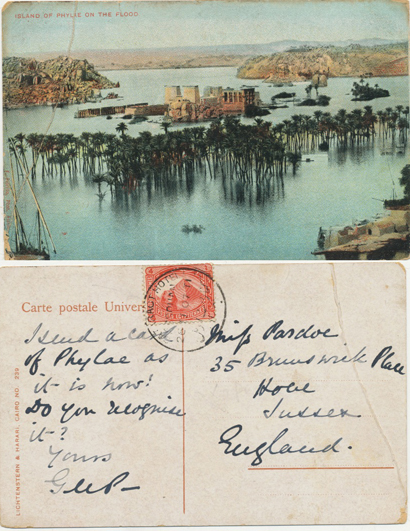 ISLAND OF PHYLAE ON THE FLOOD.
Carte postale Univer
I send a card
of Phylae as
it is now!
Do you recognise
it?
Yours
Miss Pardoe
35 Brunswick Place
Hove
Sussex
England.
LICHTENSTERN & HARARI, CAIRO NO. 239